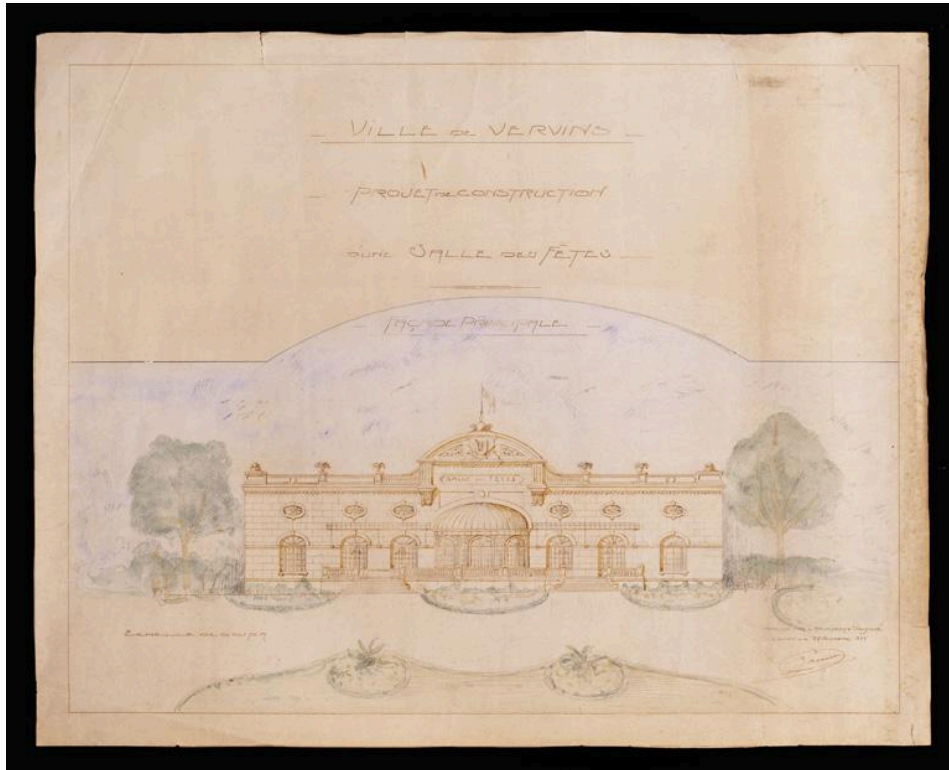 VILLE DE VERVINS
PROJET DE CONSTRUCTION
D'UNE SALLE DES FÊTES
FAÇADE PRINCIPALE
SALLE DES FETES